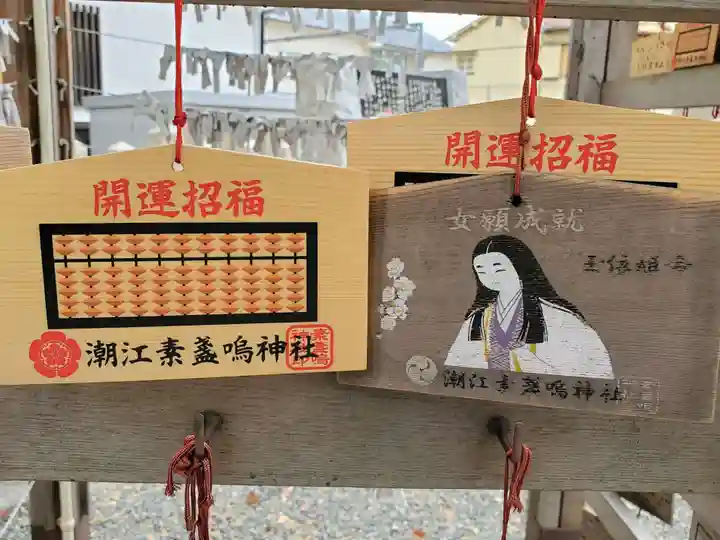 開運招福
潮江素盞嗚神社
開運招福
女願成就
玉依姫命
潮江素盞嗚神社